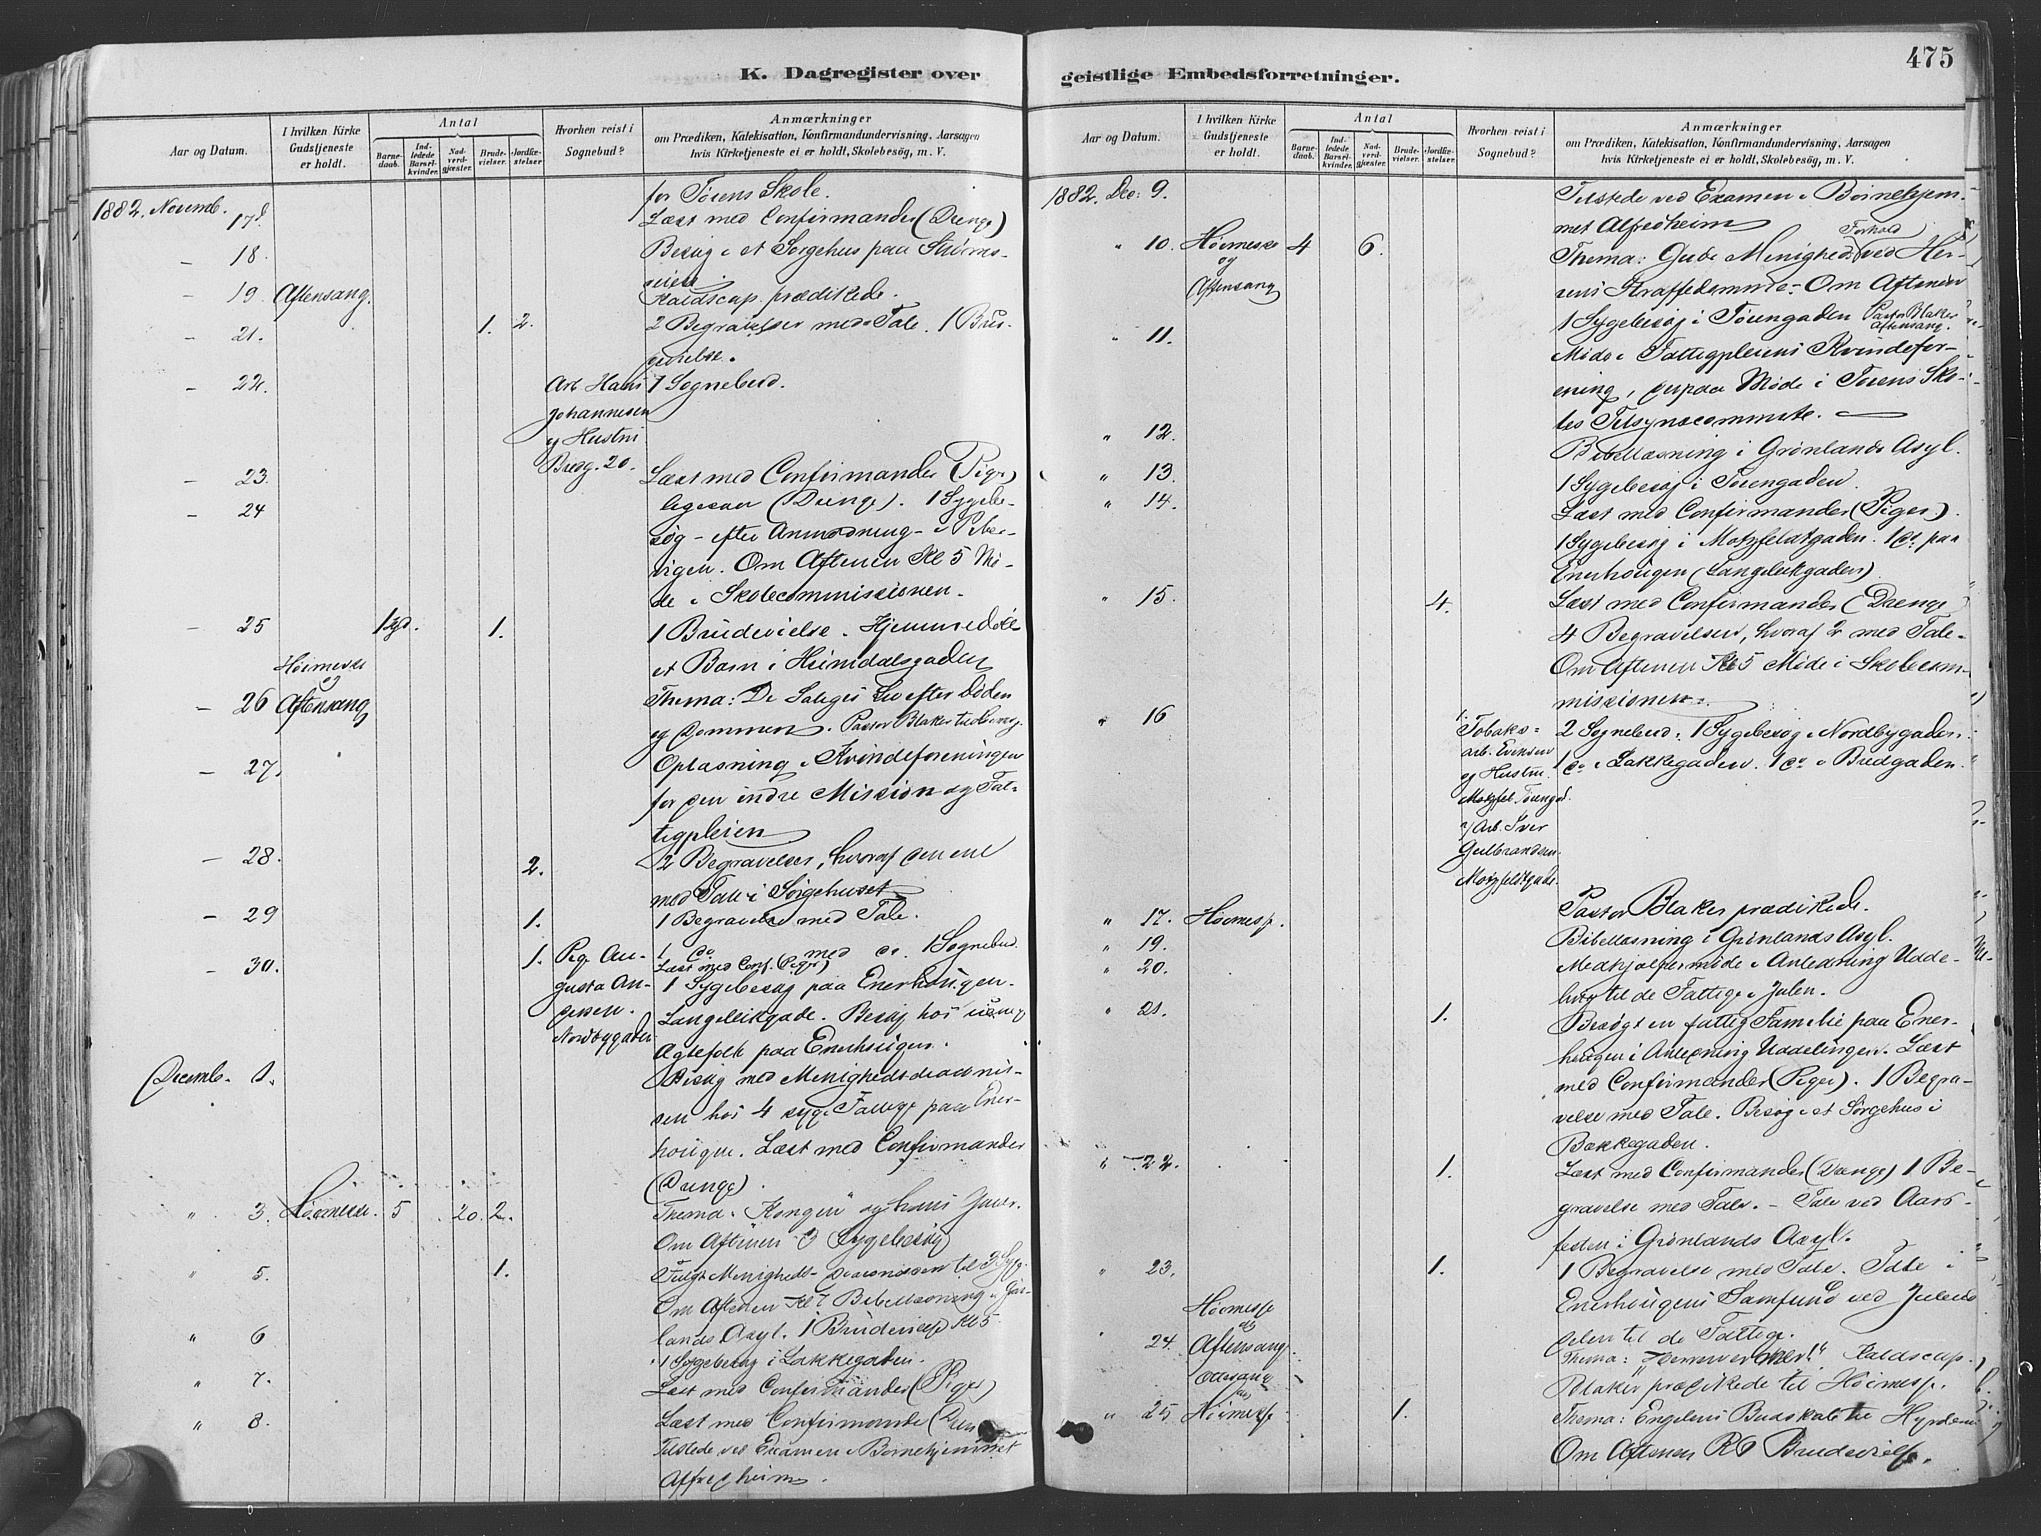 475
K. Dagregister over
geistlige Embedsforretninger.
Aar og Datum.
I hvilken Kirke Gudstjeneste er holdt.
Antal
Barnedaab.
Indledede Barselkvinder.
Nadverdgjæster.
Brudevielser.
Jordfæstelser
Hvorhen reist i Sognebud?
Anmærkninger
om Prædiken, Katekisation, Konfirmandundervisning, Aarsagen
hvis Kirketjeneste ei er holdt, Skolebesög, m. V.
for Töiens Skole.
1882. Novemb. 17d Læst med Confirmander (Drenge)
- 18. Besög i et Sørgehus paa
- 19. Aftensang. prædikede.
- 21. 1. 2. 2 Begravelser med Tale. 1
- 22. Arb Hans 1 Sognebud.
Johannesen
og Hustru
Bredg. 20.
- 23. Læst med Confirmander (Piger)
- 24 ligesaa (Drenge). 1 Sygebe-
søg - efter Anmodning - i Piber-
vigen. Om Aftenen Kl 5 Mö-
de i Skolecommissionen.
- 25 1 1. 1 Brudevielse. Hjemmedöbt
et Barn i Heimdalsgaden
Høimesse
og
- 26 Aftensang Thema: De Saliges Liv efter Döden
og Dommen. Pastor Blaker
- 27. Oplæsning i Kvindeforeningen
for den indre Mission og Fat-
tigpleien
- 28. 2. 2 Begravelser, hvoraf den ene
med Tale i Sørgehuset
- 29 1. 1 Begravelse med Tale.
- 30. 1. Pige Au- 1 do med do. 1 Sognebud.
Læst med Conf. (Piger)
gusta An- 1 Sygebesøg paa Enerhougen.
dersen. Langeleikgade. Besøg hos
Nordbygaden Ægtefolk paa Enerhougen.
Decemb. 1. Besøg med Menighedsdiaconis-
sen hos 4 syge Fattige paa Ener-
hougen. Læst med Confirmander
(Drenge).
" 3. Höimesse. 5 20. 2. Thema. "Kongen" og hans
Om Aftenen 3 Sygebesøg
" 5. 1. Fulgt Menigheds-diaconissen til 3
Om Aftenen Kl 7 Bibellæsning i Grön-
" 6 lands Asyl. 1 Brudevielse Kl 5.
1 Sygebesøg i Lakkegaden.
" 7. Læst med Confirmander (Piger)
" 8. Læst med Confirmander (Dren
Tilstede ved Examen i Børnehjemmet
Alfredheim.
Aar og Datum.
I hvilken Kirke Gudstjeneste er holdt.
Antal
Barnedaab.
Indledede Barselkvinder.
Nadverdgjæster.
Brudevielser.
Jordfæstelser.
Hvorhen reist i Sognebud?
Anmærkninger
om Prædiken, Katekisation, Konfirmandundervisning, Aarsagen
hvis Kirketjeneste ei er holdt, Skolebesøg, m. V.
1882. Dec: 9. Tilstede ved Examen i Børnehjem-
met Alfredheim
" 10. Høimesse 4 6. Thema: Guds Menigheds Forhold ved Her-
og
Aftensang rens Straffedomme. Om Aftenen
1 Sygebesøg i Töiengaden Pastor Blaker Aftensang.
" 11. Møde i Fattigpleiens Kvindefor-
ening, derpaa Møde i Töiens Sko-
les Tilsynscommite.
" 12. Bibellæsning i Grønlands Asyl.
" 13. 1 Sygebesøg i Töiengaden.
" 14. Læst med Confirmander (Piger).
1 Sygebesøg i Motzfeldtgaden. 1 do. paa
Enerhougen (Langeleikgaden).
" 15. 4. Læst med Confirmander (Drenge)
4 Begravelser, hvoraf 2 med Tale.
Om Aftenen Kl 5 Møde i Skolecom-
missionen.
" 16 Tobaks- 2 Sognebud. 1 Sygebesøg i Nordbygaden.
arb. Evensen 1 do i Lakkegaden. 1 do i Bredgaden.
og Hustru.
Arb. Iver
Gulbrandsen
Motzfeldtgade.
" 17. Høimesse. Pastor Blaker prædikede.
" 19. Bibellæsning i Grönlands Asyl.
" 20. Medhjælpermøde i Anledning Udde-
ling til de Fattige i Julen.
" 21. 1. Besøgt en fattig Familie paa Ener-
hougen i Anledning Uddelingen. Læst
med Confirmander (Piger). 1 Begra-
velse med Tale. Besøg i et Sørgehus i
Bakkegaden.
" 22. 1. Læst med Confirmander (Drenge) 1 Be-
gravelse med Tale. - Tale ved Aars-
festen i Grønlands Asyl.
" 23. 1. 1 Begravelse med Tale. Tale i
Enerhougens Samfund ved Julens
Høimesse
og
" 24. Aftensang til de Fattige.
Thema:
Blaker prædikede til Høimesse.
" 25 Høimesse 1. Thema: Engelens Budskab til Hyrderne
Om Aftenen Kl 6 Brudevielse.